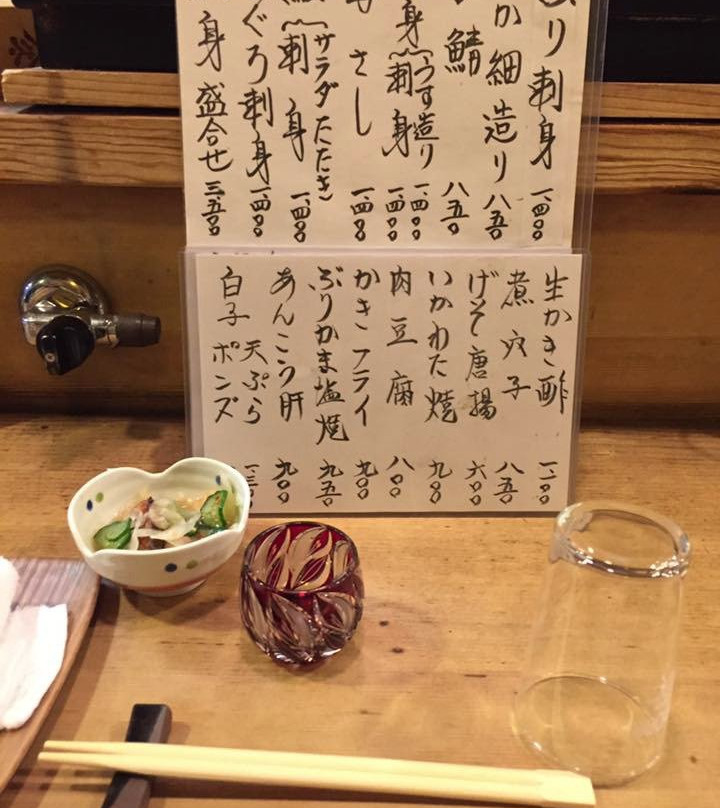 り刺身 一、四〇〇
か細造り 八五〇
鯖 八五〇
身(うす造り 一、四〇〇
刺身 一、四〇〇
さし 一、四〇〇
(サラダ たたき)
刺身 一、四〇〇
ぐろ刺身 一、四〇〇
身盛合せ 三、五〇〇
生かき酢 一、一〇〇
煮穴子 八五〇
げそ唐揚 六〇〇
いかわた焼 九〇〇
肉豆腐 八〇〇
かきフライ 九〇〇
ぶりかま塩焼 九五〇
あんこう肝 九〇〇
白子 天ぷら
ポンズ